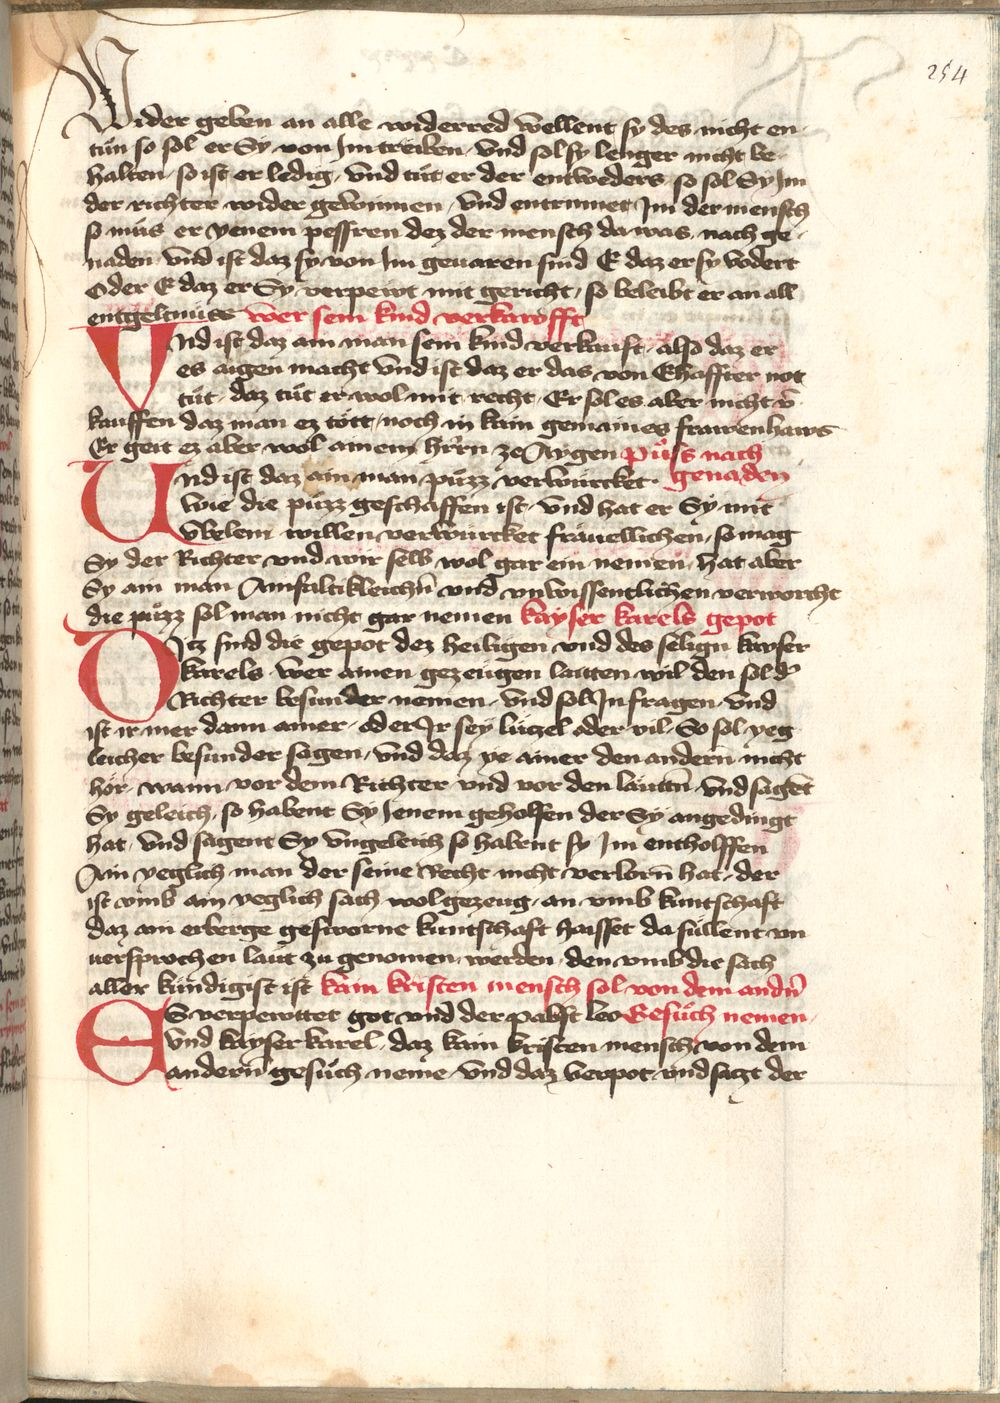 254
Wider geben an alle widerred wellent sy des nicht en
tün so sol er Sy von Im treiben. vnd sol sy lenger nicht be-
halten. so ist er ledig. vnd tüt er der entweders. so sol Sy Im
der richter wider gewinnen. vnd entrinnet Im der mensch
so müs er yenem pessren dez der mensch da was. nach ge-
naden. vnd ist daz sy von Im geuaren sind E daz er sy vodert
Oder E daz er Sy verpewt mit gericht. so beleibt er an all
entgeltnüss wer sein kind verkawfft
Vnd ist daz ain man sein kind verkauft. also daz er
es aigen macht vnd ist daz er das von Ehaffter not
tüt. daz tüt er wol mit recht. Er sol es aber nicht v̄
kauffen daz man ez tött. noch in kain gemaines frawenhaws
Er geit ez aber wol ainem hr̄rn ze Aygen Püss nach
genaden
Und ist daz ain man püzz verwürcket.
wie die püzz geschaffen ist. vnd hat er Sy mit
Vbelem willen verwürcket fräuellichen. so mag
Sy der Richter vnd wir selb wol gar ein nemen. hat aber
Sy ain man Ainfaltikleichn̄ vnd vnwissentlichen verworcht
die püzz sol man nicht gar nemen kayser karels gepot
Ditz sind die gepot dez heiligen vnd des selign kayser
karels. wer ainen gezeugen laitten wil den sol d'
Richter besunder nemen. vnd sol In fragen. vnd
ist ir mer dann ainer. oder Ir sey lützel oder vil. So sol yeg
leicher besunder sagen. vnd daz ye ainer den andern̄ nicht
hör. wann vor dem Richter vnd vor den läuttn̄. vnd sagent
Sy geleich. so habent Sy Jenem geholfen der Sy angedingt
hat. vnd sagent Sy vngeleich so habent sy Im entholffen
Ain yeglich man der seine Recht nicht verlorn̄ hat. der
ist vmb ain yeglich sach wol gezeug. an vmb kuntschaft
daz ain erberge gesworne kuntschaft haisset da süllent vn
uersprochen läut zu genomen werden. den vmb die sach
aller kündigist ist kain kristen mensch sol von dem andn̄
Es verpewttet got vnd der pabst leo Gesüch nemen.
vnd kayser karel. daz kain kristen mensch von dem
andern̄ gesüch neme. vnd daz verpot. vnd satzt der